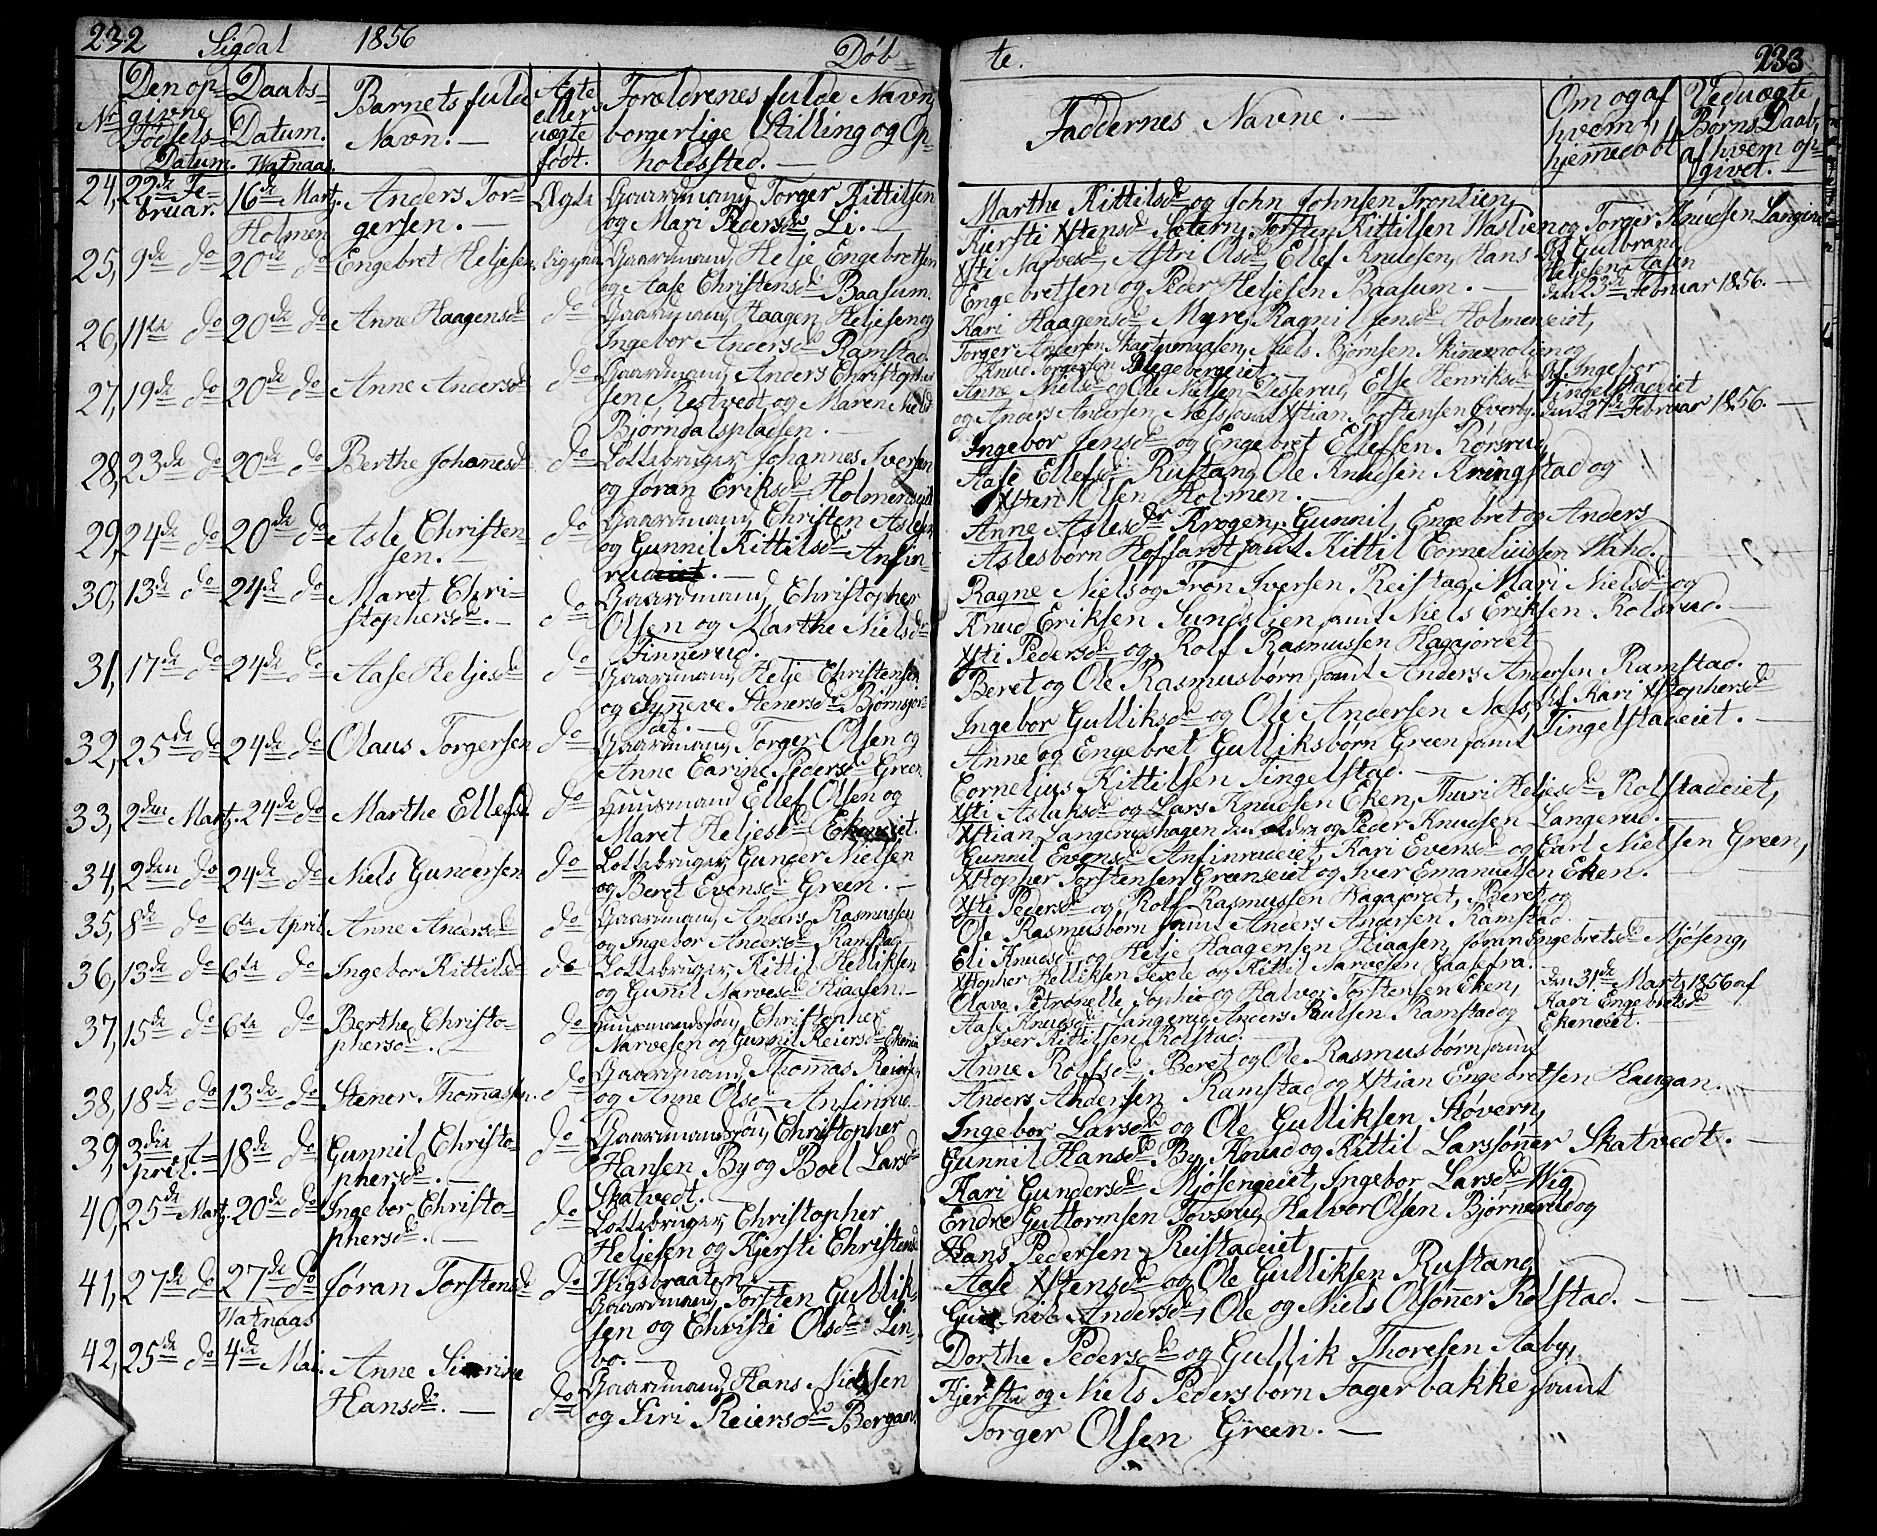 232 Sigdal 1856 Døb= te. 233
Nr
Den op= givne Fødsels= Datum.
Daabs= Datum. Watnaas.
Barnets fulde Navn. —
Ægte eller uægte født.
Forældrenes fulde Navn, borgerlige Stilling og Op= holdssted. —
Faddernes Navne. —
Om og af hvem, hjemmedøbt
Ved uægte Børns Daab, af hvem op= givet. —
24, 22de Fe= bruar. 16de Mart. Holmen Anders Tor= gersen. — Ægte
Gaardmand Torger Kittilsen
og Mari Pedersd. Li. —
Marthe Kittilsd. og John Johnsen Tronlien,
Kjersti Xstensd. Sætern, Torsten Kittilsen Waslien og Torger Knudsen Langerud
25, 9de do 20de do Engebret Heljesen
Gaardmand Helje Engebretsen
og Aase Christensd. Baasum.
Xsti Narvesd., Astri Olsd., Ellef Knudsen, Hans
Engebretsen og Peder Heljesen Baasum. —
Af Gulbrand
Heljesen Aasen
den 23de Februar 1856. —
26, 11te do 20de do Anne Haagensd. do
Gaardmand Haagen Heljesen og
Ingebor Andersd. Ramstad.
Kari Haagensd. Myre, Ragnil Jensd. Holmeneiet,
Torger Andersen Skartumaasen, Niels Bjørnsen Skinnemolien og
Knud Torgersen Plegebergeiet.
27, 19de do 20de do Anne Andersd. do
Gaardmand Anders Christopher=
sen Restvedt og Maren Nielsd.
Bjørndalspladsen. —
Anne Nielsd. og Ole Nielsen Disserud, Else Henriksd.
og Anders Andersen Næs samt Xstian Torstensen Overby.
Af Ingebor
Tingelstadeiet
den 27de Februar 1856. —
28, 23de do 20de do Berthe Johanesd. do
Lottebruger Johannes Iversen
og Jøran Eriksd. Holmeneiet
Ingebor Jensd. og Engebret Ellefsen Rørsrud,
Aase Ellefsd. Rustand, Ole Knudsen Kringstad og
Xsten Olsen Holmen. —
29, 24de do 20de do Asle Christen=
sen. — do
Gaardmand Christen Aslesen
og Gunnil Kittilsd. Anfin=
rud. —
Anne Aslesdr Krogen, Gunnil, Engebret og Anders
Aslesbørn Hoffardt samt Kittil Corneliussen Waho. —
30, 13de do 24de do Maret Chri=
stophersd. — do
Gaardmand Christopher
Olsen og Marthe Nielsdr
Finnerud.
Ragne Niels og Tron Iversen Reistad, Mari Nielsd. og
Knud Eriksen Sundslien samt Niels Eriksen Rolsrud. —
31, 17de do 24de do Aase Heljesd. do
Gaardmand Helje Christensen
og Synneve Stenersd. Bjørnsjor=
det. —
Xsti Pedersd. og Rolf Rasmussen Hagajordet
Beret og Ole Rasmusbørn samt Anders Andersen Ramstad. —
32, 25de do 24de do Olaus Torgersen do
Gaardmand Torger Olsen og
Anne Carine Pedersd. Green.
Ingebor Gulliksd. og Ole Andersen Næs,
Anne og Engebret Gulliksbørn Green samt
Cornelius Kittilsen Tingelstad. —
Af Kari Xstophersd.
Tingelstadeiet. —
33, 2den Mart. 24de do Marthe Ellefsd. do
Huusmand Ellef Olsen og
Maret Heljesd. Ekeneiet.
Xsti Aslaksd. og Lars Knudsen Eken, Thuri Heljesd. Rolfstadeiet,
Xstian Langerudshagen den ældre og Peder Knudsen Langerud. —
34, 2den do 24de do Niels Gundersen do
Lottebruger Gunder Nielsen
og Beret Evensd. Green. —
Gunnil Evensd. Anfinrudeiet, Kari Evensd. og Carl Nielsen Green,
Xstopher Torstensen Greenseiet og Iver Emanuelsen Eken. —
35, 8de do 6te April Anne Andersd. do
Gaardmand Anders Rasmussen
og Ingebor Andersd. Ramstad.
Xsti Pedersd. og Rolf Rasmussen Hagajordet, Beret og
Ole Rasmusbørn samt Anders Andersen Ramstad.
36, 13de do 6te do Ingebor Kittilsd. do
Lottebruger Kittil Helliksen
og Gunnil Narvesd. Hiaasen. —
Eli Knudsd. og Helje Haagensen Hiaasen, Jøran Engebretsd. Mjøseng,
Xstopher Helliksen Texle og Kittil Narvesen Gaasefra. —
37, 15de do 6te do Berthe Christo=
phersd. — do
Huusmandssøn Christopher
Narvesen og Gunnil Reiersd. Ekeneiet
Olava Petronelle Sophie og Halvor Torstensen Eken,
Aase Knudsd. Langerud, Anders Paulsen Ramstad og
Iver Kittilsen Rolstad. —
den 31de Mart. 1856 af
Kari Engebretsd.
Ekeneiet.
38, 18de do 13de do Stener Thomassen. do
Gaardmand Thomas Reiersen
og Anne Olsd. Anfinrud.
Anne Rolfsd., Beret og Ole Rasmusbørn samt
Anders Andersen Ramstad og Xstian Engebretsen Haugan. —
39, 3die A=
pril. 18de do Gunnil Christo=
phersd. — do
Gaardmandssøn Christopher
Hansen By og Boel Larsd.
Skatvedt. —
Ingebor Larsd. og Ole Gulliksen Støvern,
Gunnil Hansd. By, Knud og Kittil Larssønner Skatvedt. —
40, 25de Mart. 20de do Ingebor Christo=
phersd. — do
Lottebruger Christopher
Heljesen og Kjersti Christensd.
Wigsbraaten.
Kari Gundersd. Mjøsengeiet, Ingebor Larsd. Wig,
Endre Guttormsen Tovsrud, Halvor Olsen Bjørnerud og
Hans Pedersen Reistadeiet
41, 27de do 27de do Watnaas Jøran Torstensd. do
Gaardmand Torsten Gullik=
sen og Christi Olsd. Lin=
bo. —
Aase Xstensd. og Ole Gulliksen Rustand,
Andersd., Ole og Niels Olsønner Rolstad. —
42, 25de do 4de Mai. Anne Sirine
Hansd. — do
Gaardmand Hans Nielsen
og Siri Reiersd. Bergan.
Dorthe Pedersd. og Gullik Thoresen Aaby,
Kjersti og Niels Pedersbørn Fagerbakke samt
Torger Olsen Green. —